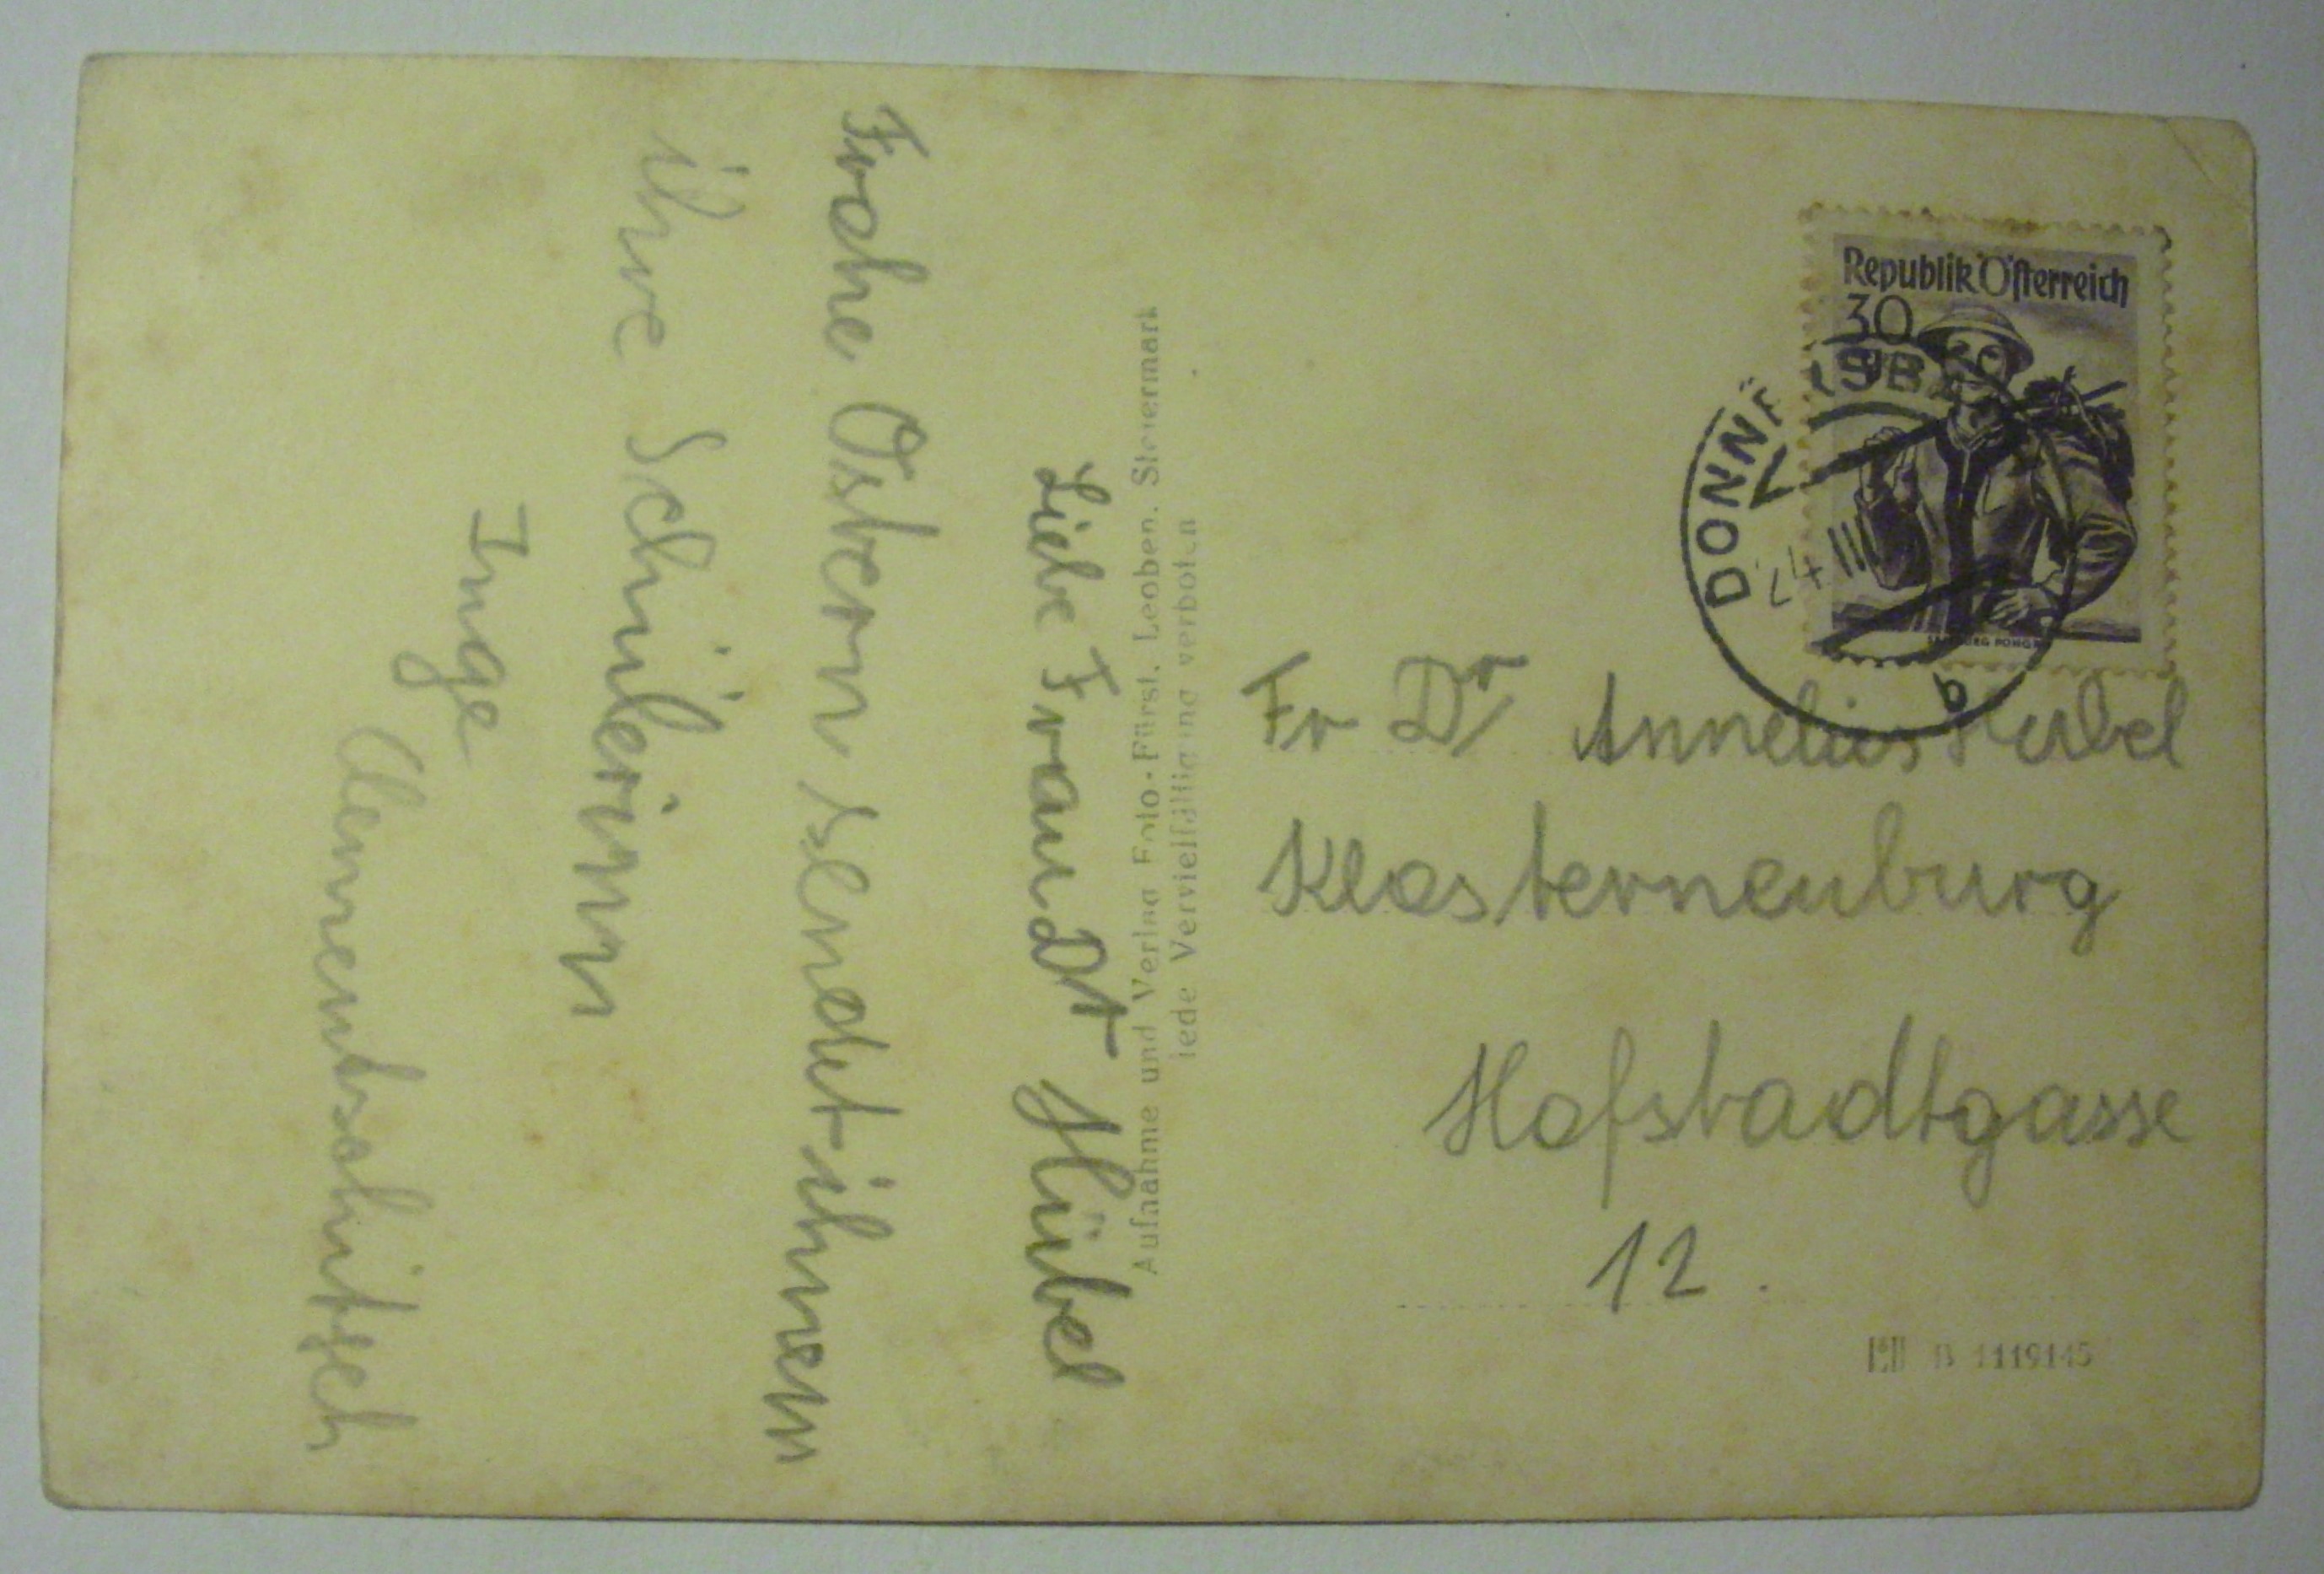 Liebe Frau Dr Hübel
Frohe Ostern sendet ihnen
ihre Schülerinn
Inge
Aufnahme und Verlag Foto-Fürst, Leoben, Steiermark
jede Vervielfältigung verboten
Republik Österreich
30
DONNERSBA
24 III
a
Fr Dr Annelies Hübel
Klosterneuburg
Hofstadtgasse
12.
B 1119145